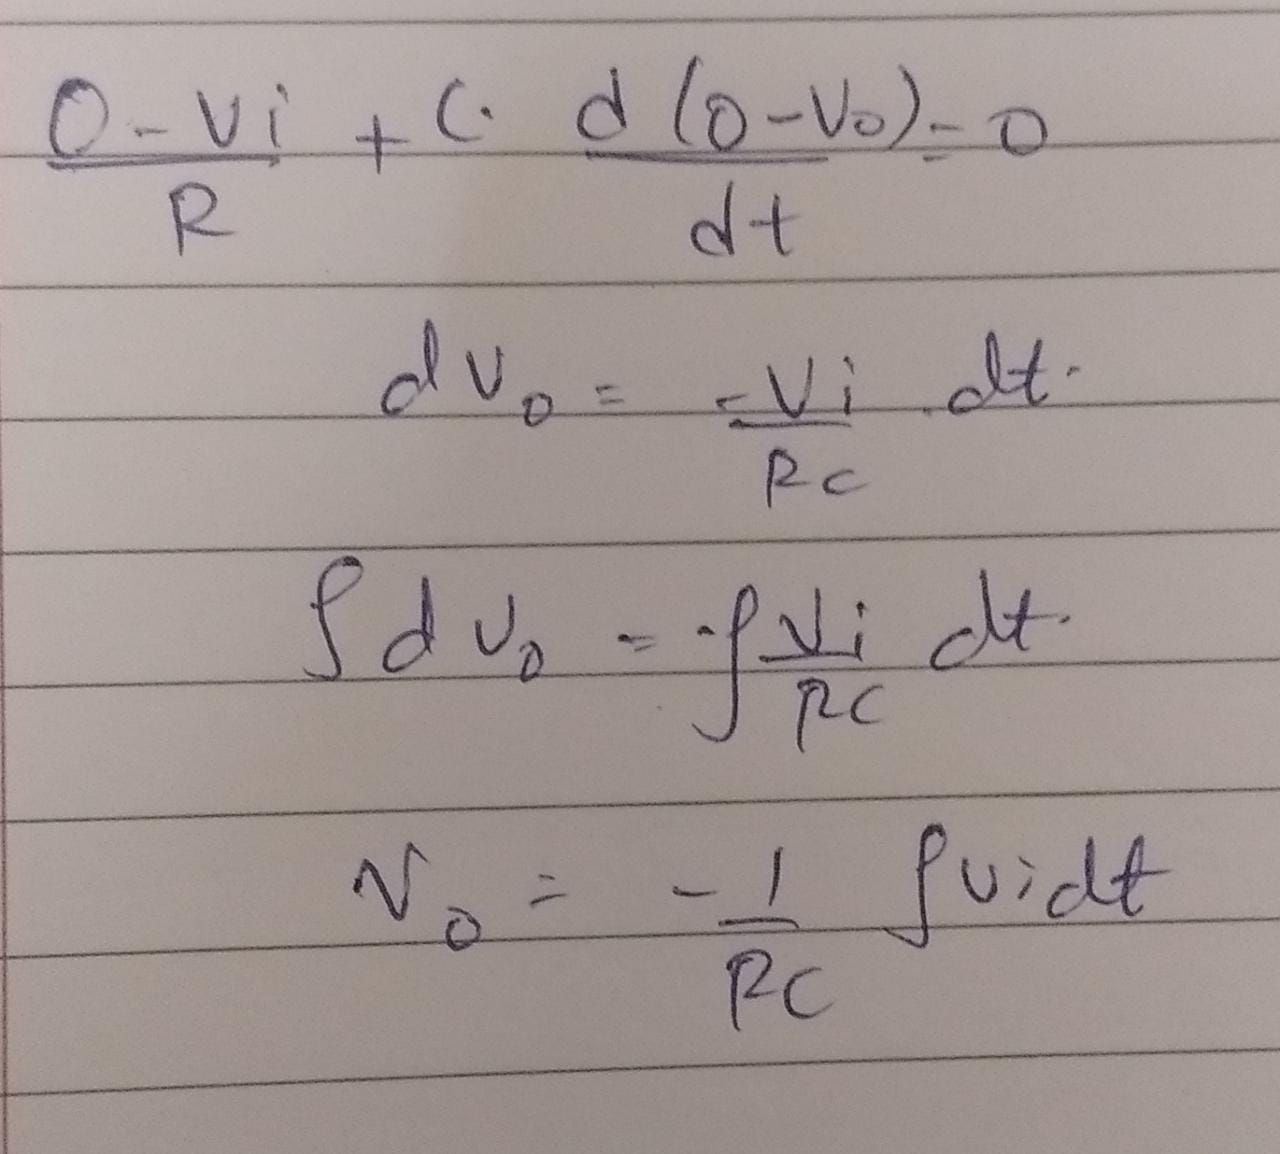 (0 - Vi)/R + C. d(0 - V₀)/dt = 0
dV₀ = -Vi/RC . dt.
∫dV₀ = -∫Vi/RC dt.
V₀ = -1/RC ∫vidt